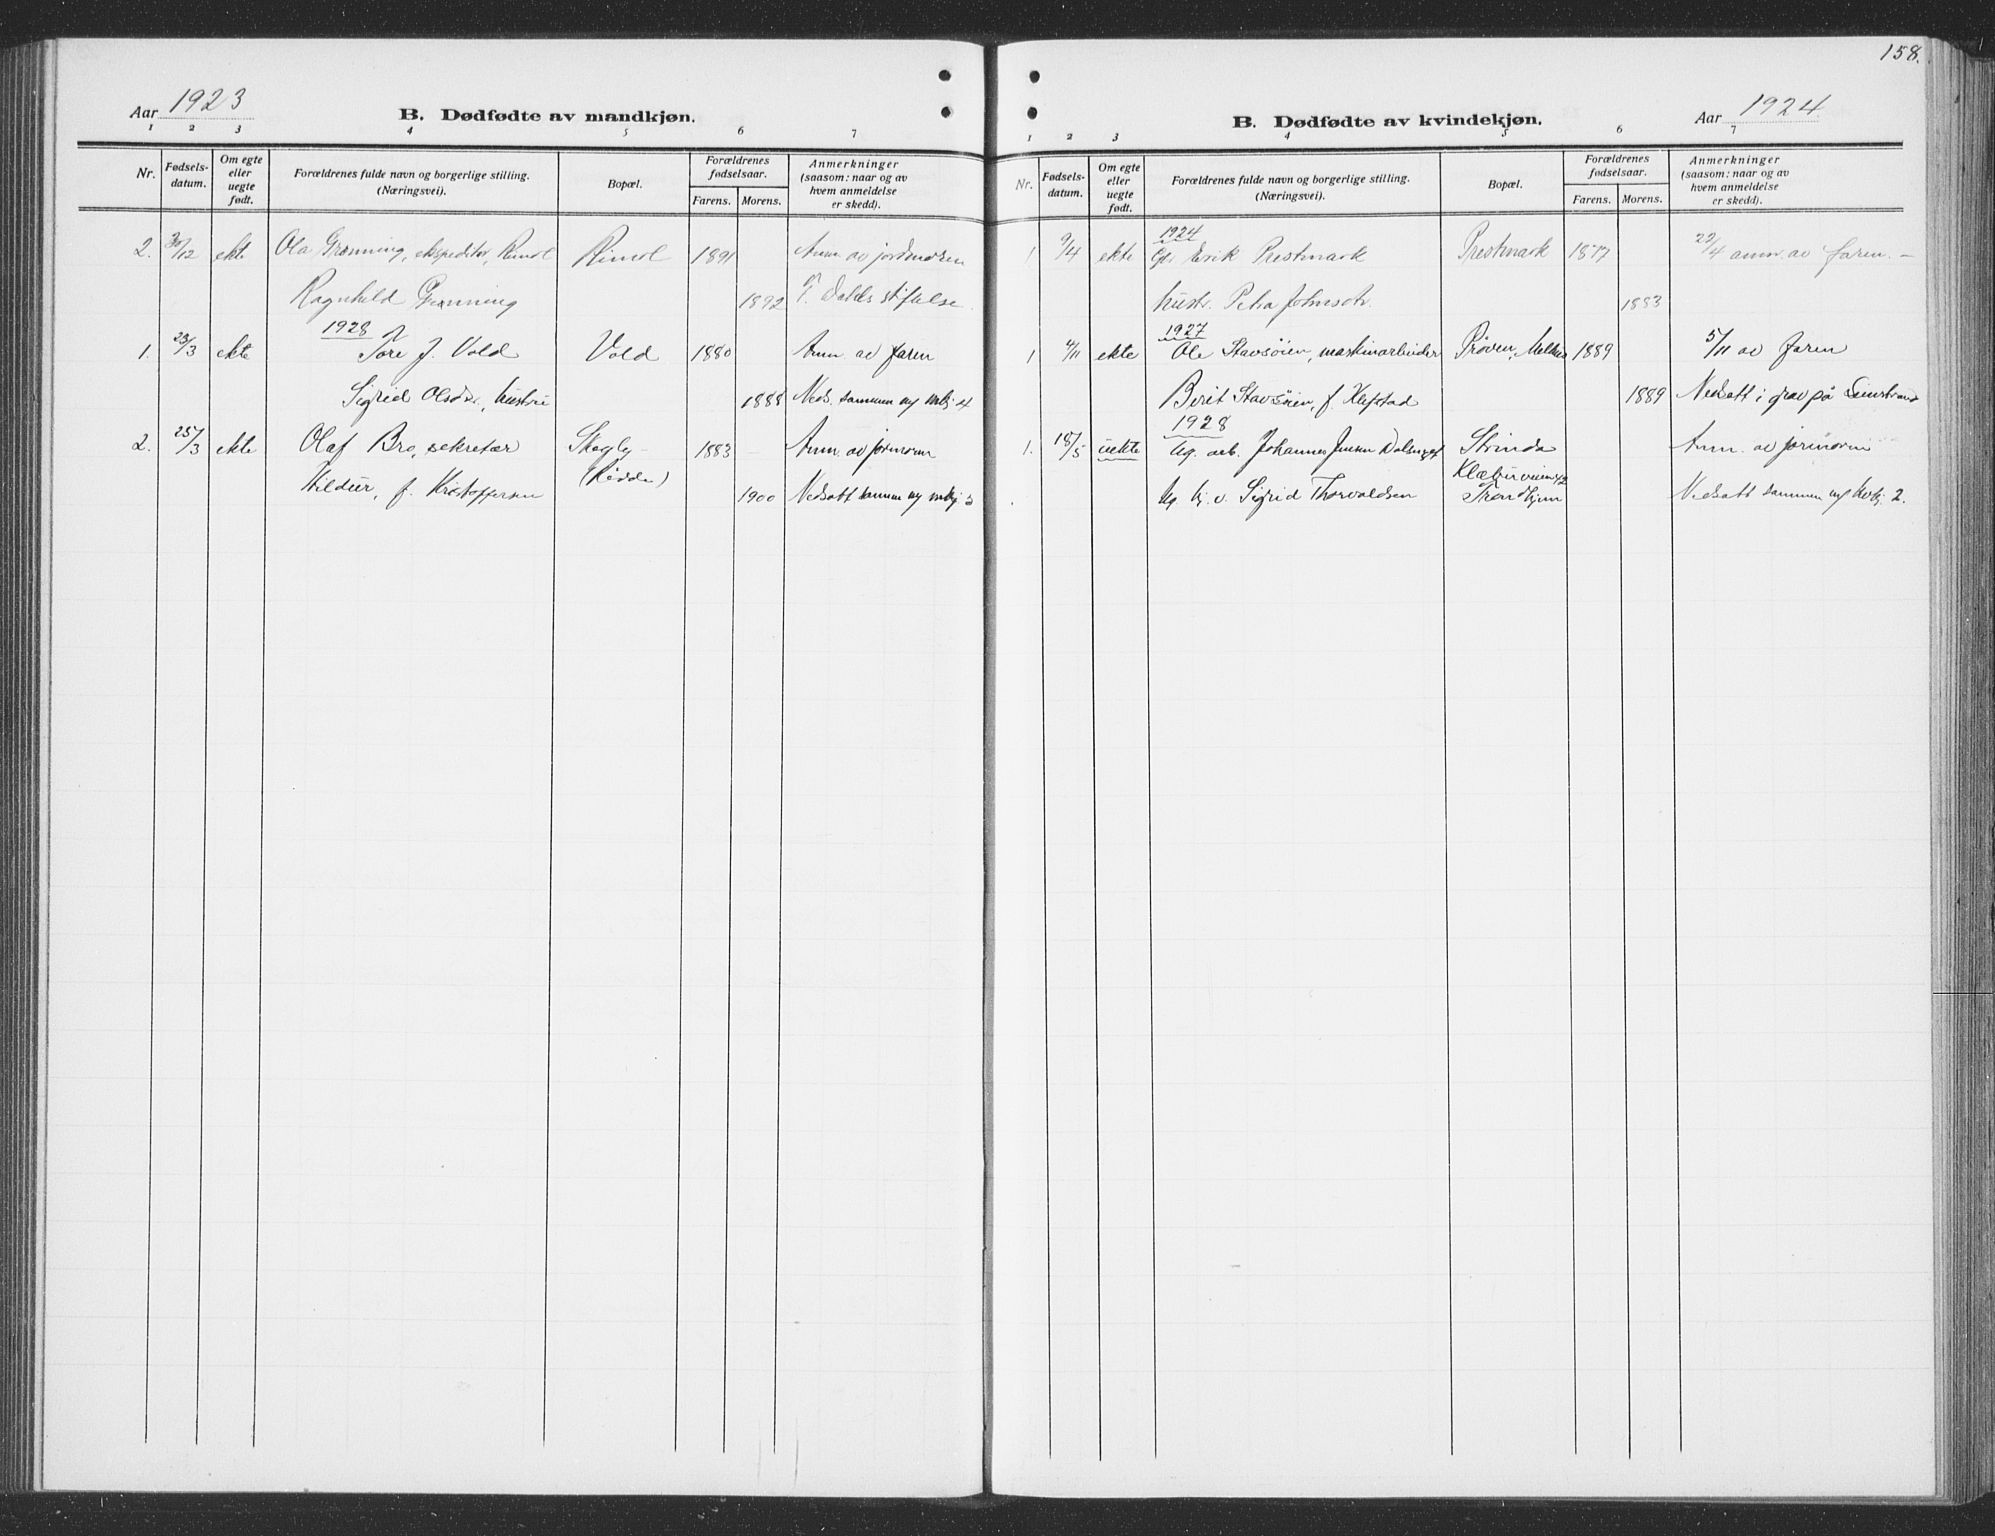 158.
Aar 1923
B. Dødfødte av mandkjøn.
1 2 3 4 5 6 7
Nr.
Fødsels-
datum.
Om egte
eller
uegte
født.
Forældrenes fulde navn og borgerlige stilling.
(Næringsvei).
Bopæl.
Forældrenes
fødselsaar.
Farens. Morens.
Anmerkninger
(saasom: naar og av
hvem anmeldelse
er skedd).
2. 30/12 ekte Ola Grønning, ekspeditør, Rimol Rimol 1891 Anm av jordmoren
Ragnhild Grønning 1892 Dahls stiftelse.
1928
1. 23/3 ekte Tore J. Vold Vold 1880 Anm. av faren
Sigrid Olsdtr., hustru 1888 Neds. sammen m/ mkj. 4
2. 25/3 ekte Olaf Bro, sekretær Skogly 1883 Anm. av jormoren
Hildur, f. Kristoffersen (Rødde) 1900 Nedsatt sammen m/ mkj. 3
B. Dødfødte av kvindekjøn.
Aar 1924.
1 2 3 4 5 6 7
Nr.
Fødsels-
datum.
Om egte
eller
uegte
født.
Forældrenes fulde navn og borgerlige stilling.
(Næringsvei).
Bopæl.
Forældrenes
fødselsaar.
Farens. Morens.
Anmerkninger
(saasom: naar og av
hvem anmeldelse
er skedd).
1924
1 9/4 ekte Erik Prestmark Prestmark 1877 22/4 anm. av faren. –
hustr. Petra Johnsdtr. 1883
1927
1 4/11 ekte Ole Stavsøien, maskinarbeider Prøven, Melhus 1889 5/11 av faren
Berit Stavsøien, f. Klefstad 1889 Nedsatt i grav på
1928
1. 18/5 uekte Ug. arb. Johannes Jensen Strinda Anm. av jormoren
Ug. kj. v. Sigrid Thorvaldsen Trondhjem Nedsatt sammen m/ kvkj. 2.